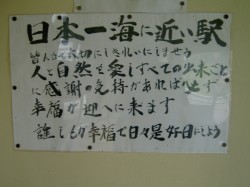 日本一海に近い駅
皆んなで大切にきれいにしませう
人と自然を愛しすべての出来ごと
に感謝の気持があれば必ず
幸福が迎へに来ます
誰しも幸福で日々是好日にしよう